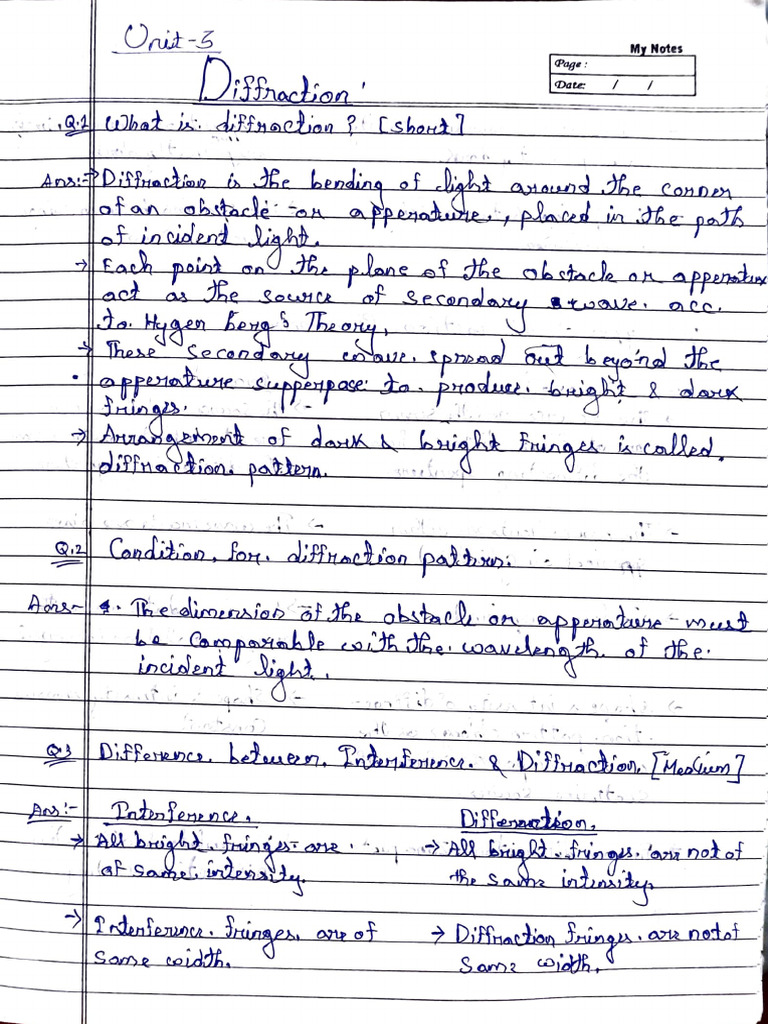 Unit-3
My Notes
Page :
Date: / /
Diffraction
Q.1 What is diffraction ? [short]
Ans:-→ Diffraction is the bending of light around the corner
of an obstacle or apperature, placed in the path
of incident light.
→ Each point on the plane of the obstacle or apperature
act as the source of secondary wave. acc.
to Hygen Berg's Theory,
→ These secondary wave spread out beyond the
apperature supperpose to produce bright & dark
fringes.
→ Arrangement of dark & bright Fringes is called
diffraction pattern.
Q.2 Condition for diffraction pattern:
Ans- The dimension of the obstacle or apperature must
be comparable with the wavelength of the
incident light.
Q.3 Difference between Interference & Diffraction, [Medium]
Ans:- Interference. Differaction,
→ All bright fringes are → All bright fringes are not of
of same intensity. the same intensity.
→ Interference fringes are of → Diffraction fringes are not of
same width. same width.